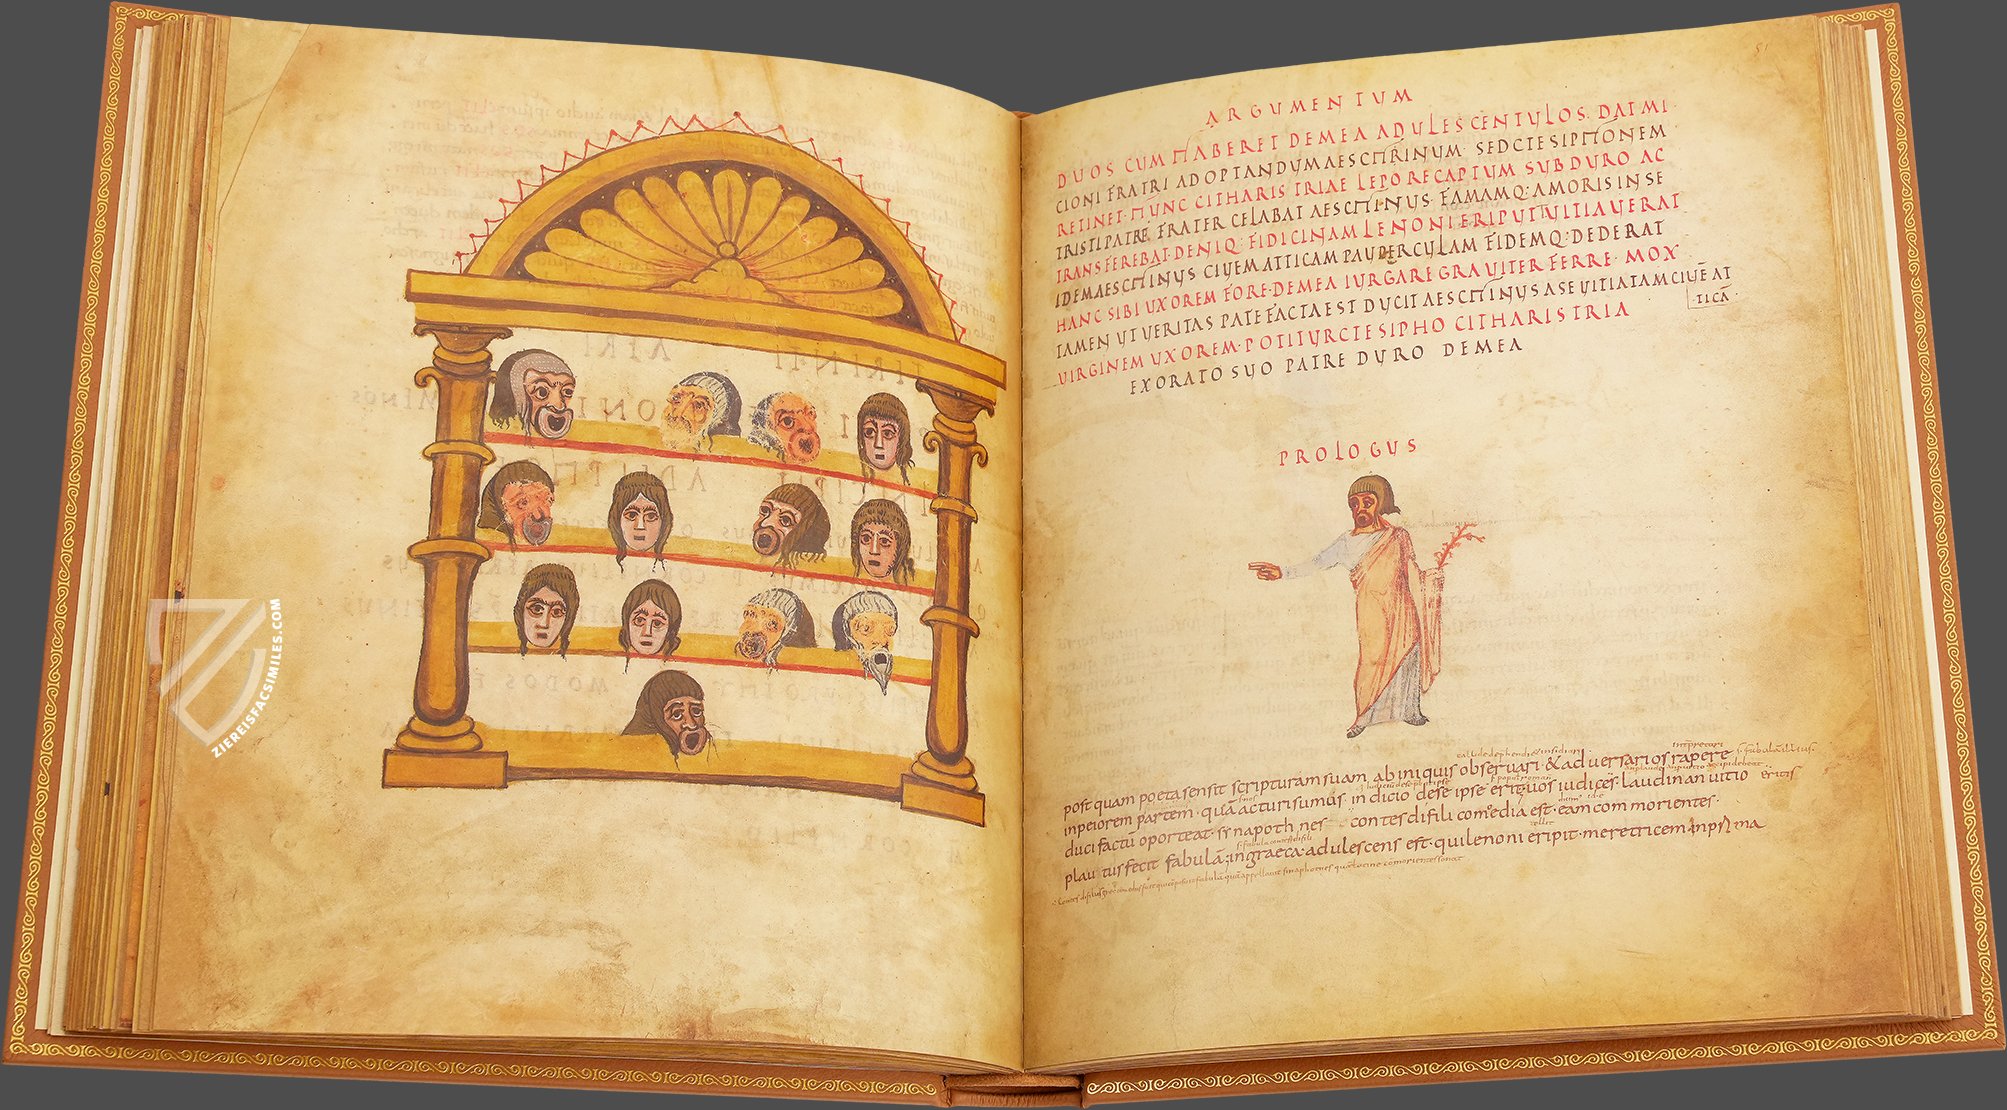 ZIEREISFACSIMILES.COM
51
ARGUMENTUM
DUOS CUM HABERET DEMEA ADULESCENTULOS. DAT MI
CIONI FRATRI ADOPTANDUM AESCHRINUM SED CTESIPHONEM
RETINET. HUNC CITHARISTRIAE LEPORE CAPTUM SUB DURO AC
TRISTI PATRE FRATER CELABAT AESCHINUS. FAMAMQ. AMORIS IN SE
TRANSFEREBAT. DENIQ. FIDICINAM LENONI ERIPUIT UITIAUERAT
IDEM AESCHINUS CIUEM ATTICAM PAUPERCULAM FIDEMQ. DEDERAT
HANC SIBI UXOREM FORE. DEMEA IURGARE GRAUITER FERRE. MOX
TAMEN UT UERITAS PATEFACTA EST DUCIT AESCHINUS A SE UITIATAM CIUĒ AT
.TICĀ.
UIRGINEM UXOREM. POTITUR CTESIPHO CITHARISTRIA
EXORATO SUO PATRE DURO DEMEA
PROLOGUS
post quam poeta sensit scripturam suam ab iniquis obseruari. & aduersarios rapere
in peiorem partem. quā acturi sumus. indicio de se ipse erit. uos iudices. laudin an uitio
duci factū oporteat. synapothnes contes difili comedia est. eam commorientes.
plautus fecit fabulā; in graeca. adulescens est. qui lenoni eripit. meretricem in